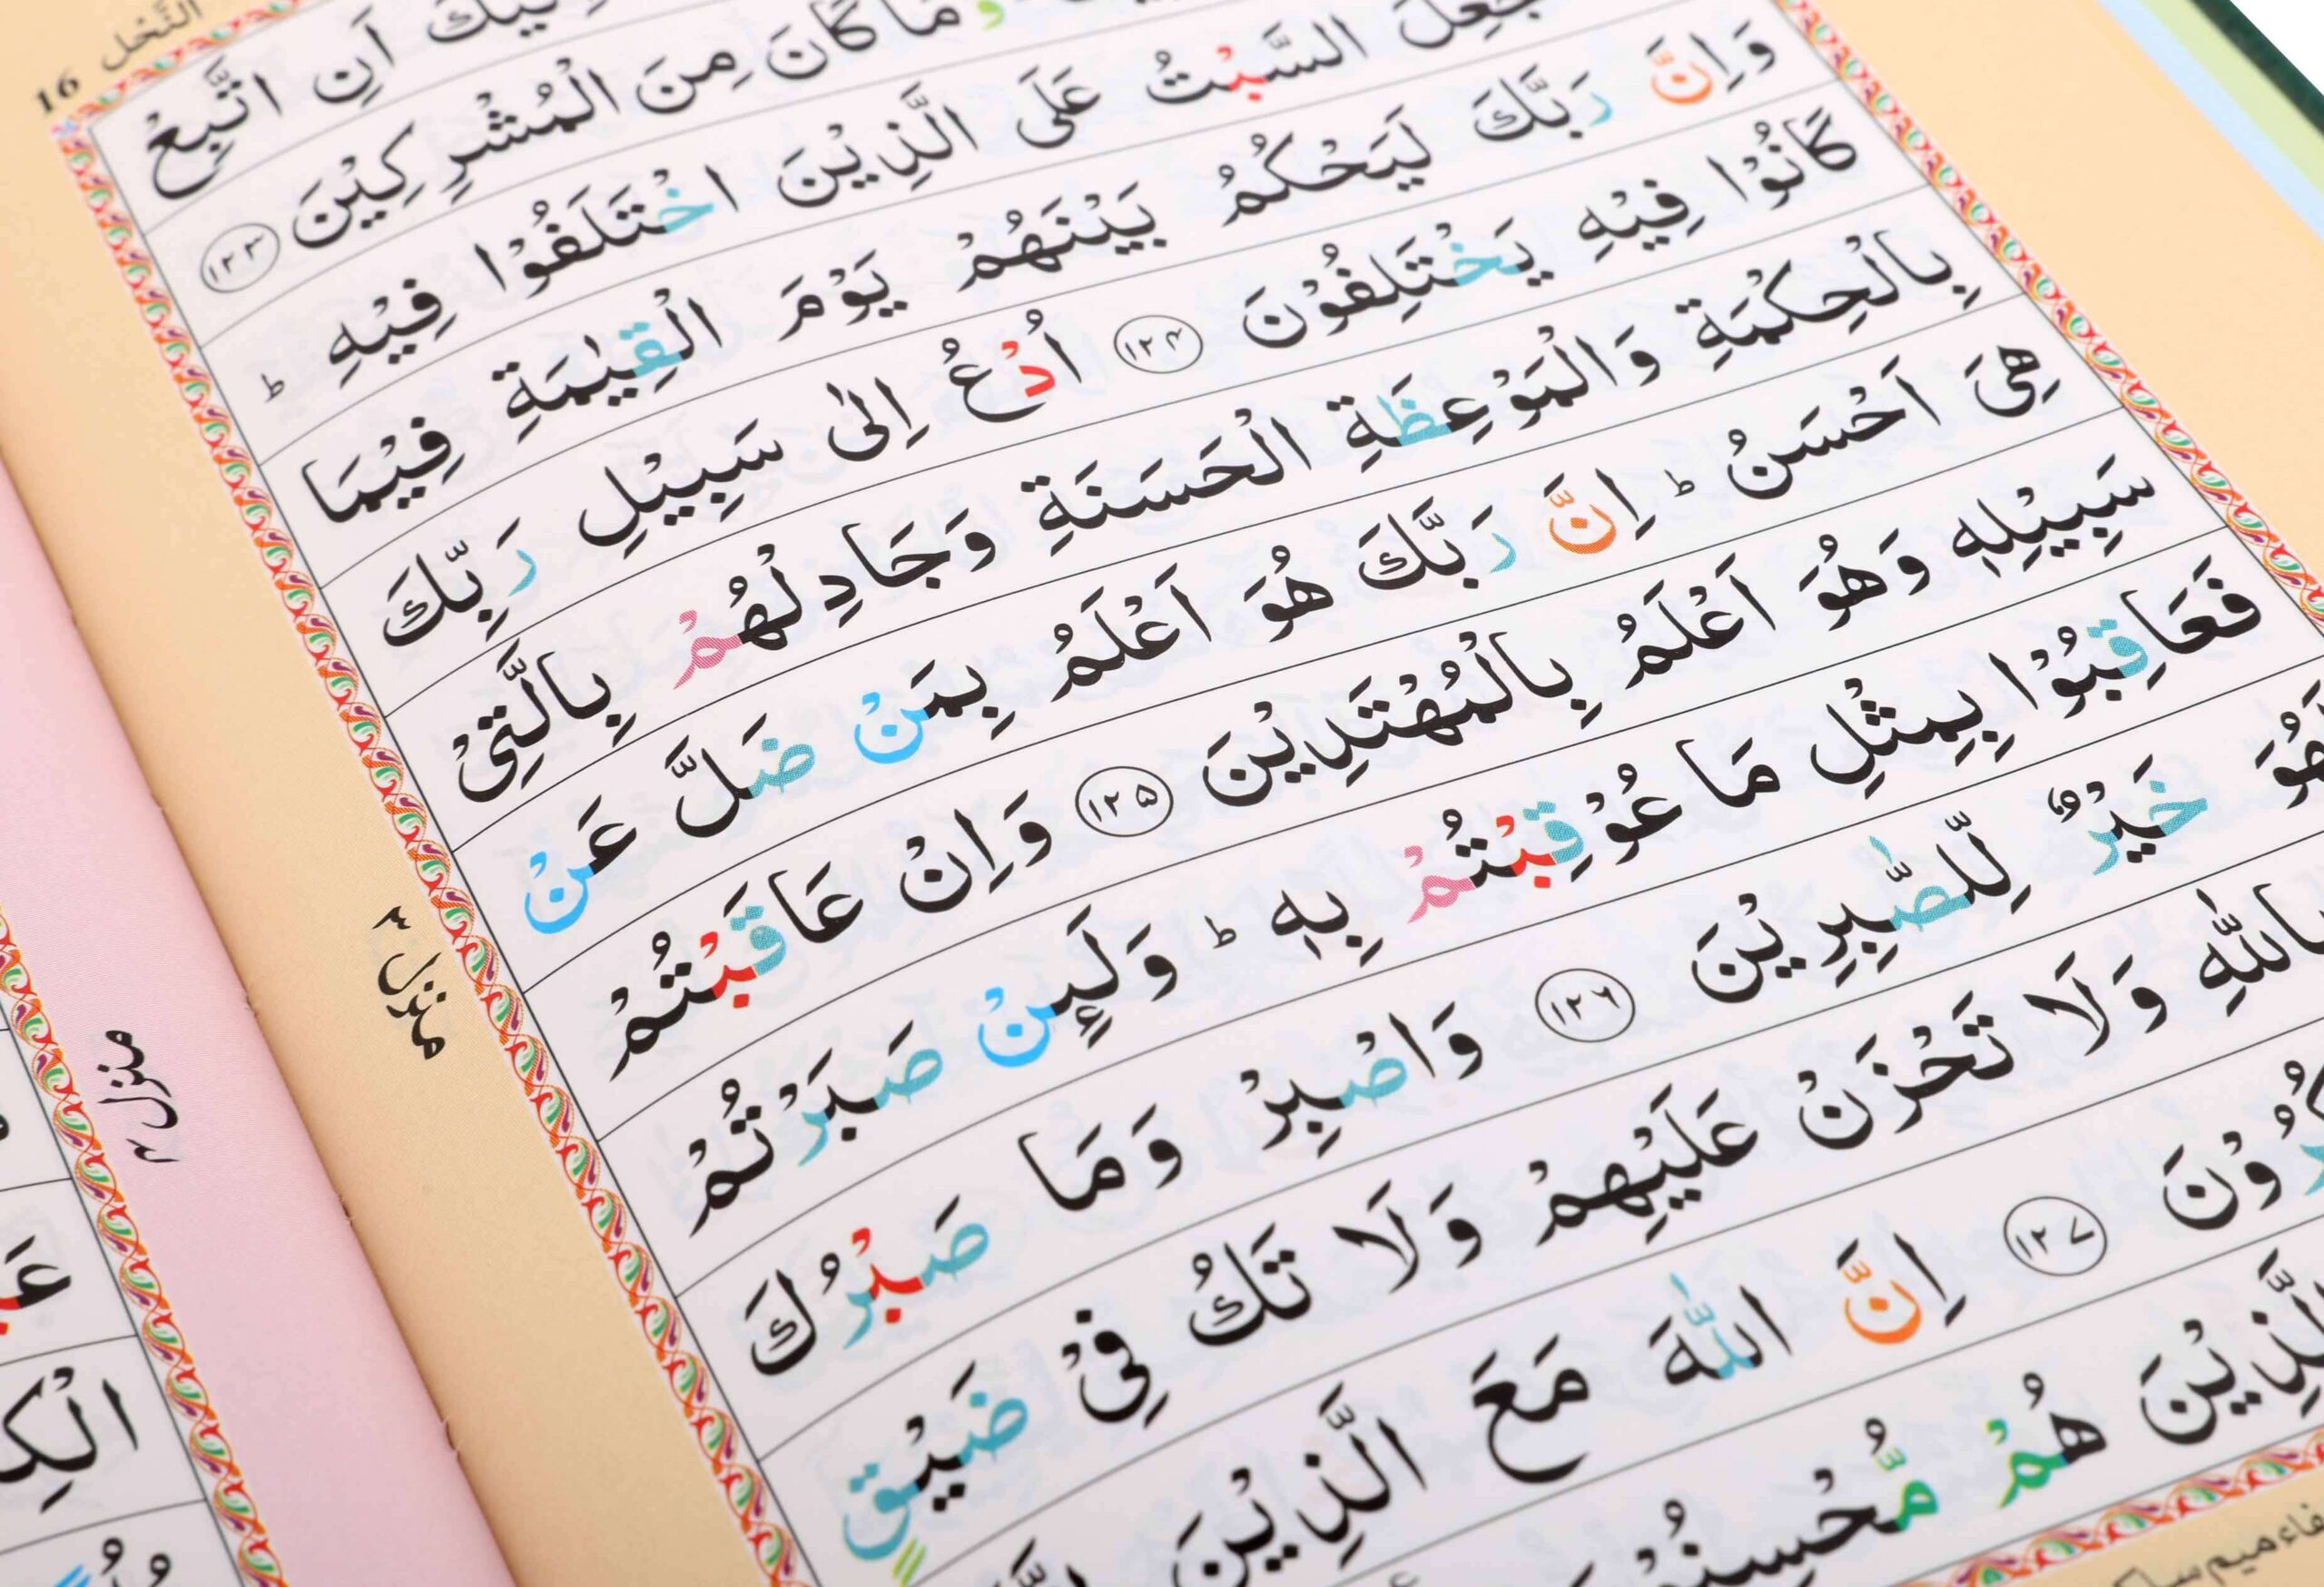 النَّحل 16
اَنِ اتَّبِعْ
مَا كَانَ مِنَ الْمُشْرِكِيْنَ ۝۱۲۳
جُعِلَ السَّبْتُ عَلَى الَّذِيْنَ اخْتَلَفُوْا فِيْهِ ؕ
وَاِنَّ رَبَّكَ لَيَحْكُمُ بَيْنَهُمْ يَوْمَ الْقِيٰمَةِ فِيْمَا
كَانُوْا فِيْهِ يَخْتَلِفُوْنَ ۝۱۲۴ اُدْعُ اِلٰى سَبِيْلِ رَبِّكَ
بِالْحِكْمَةِ وَالْمَوْعِظَةِ الْحَسَنَةِ وَجَادِلْهُمْ بِالَّتِىْ
هِىَ اَحْسَنُ ؕ اِنَّ رَبَّكَ هُوَ اَعْلَمُ بِمَنْ ضَلَّ عَنْ
سَبِيْلِهٖ وَهُوَ اَعْلَمُ بِالْمُهْتَدِيْنَ ۝۱۲۵ وَاِنْ عَاقَبْتُمْ
فَعَاقِبُوْا بِمِثْلِ مَا عُوْقِبْتُمْ بِهٖ ؕ وَلَئِنْ صَبَرْتُمْ
لَهُوَ خَيْرٌ لِّلصّٰبِرِيْنَ ۝۱۲۶ وَاصْبِرْ وَمَا صَبْرُكَ
بِاللّٰهِ وَلَا تَحْزَنْ عَلَيْهِمْ وَلَا تَكُ فِىْ ضَيْقٍ
۝۱۲۷ اِنَّ اللّٰهَ مَعَ الَّذِيْنَ
الَّذِيْنَ هُمْ مُّحْسِنُوْنَ
منزل ۳
منزل ۳
الْكِ